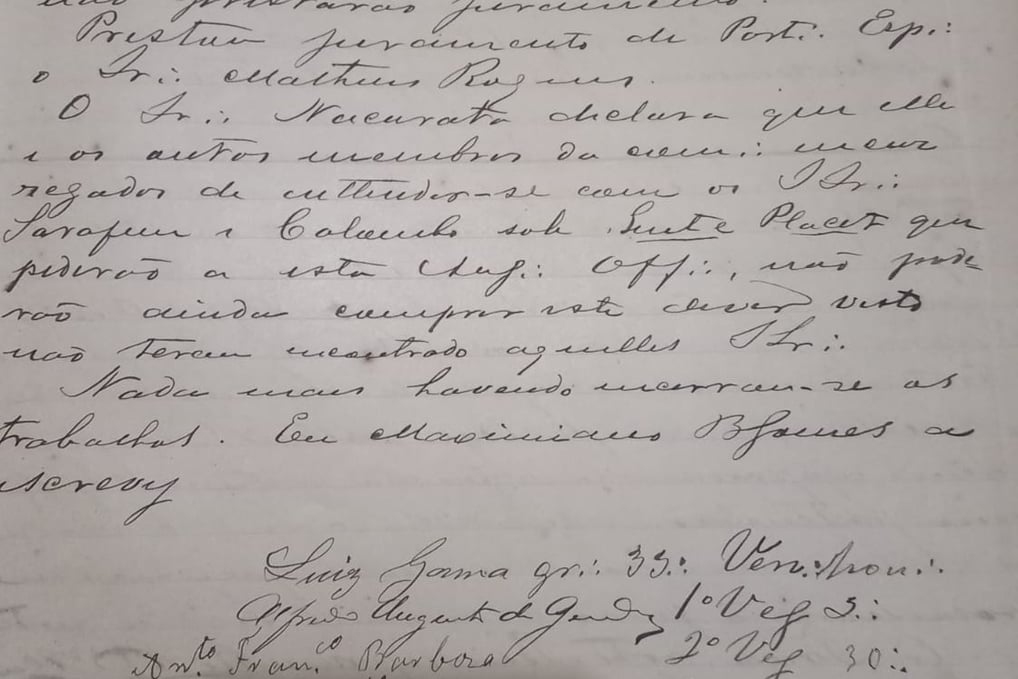 não prestarão juramento.
Prestou juramento de Port∴ Exp∴
o Ir∴ Matheus
O Ir∴ Nacarato declara que elle
e os outros membros da com∴ incar
regados de entender-se com os IIr∴
Sarafim e Colombo sob Sint e Placet que
pedirão a esta Aug∴ Off∴, não pode
rão ainda comprir este dever visto
não terem incontrado aquelles IIr∴
Nada mais havendo incerrou-se os
trabalhos. Eu Maximiano BGomes a
screvy
Luiz Gama gr∴ 33∴ Ven∴ hon∴
Alfredo Augusto de 1º Vig 3∴
Antº Francº Barbosa 2º Vig 30∴